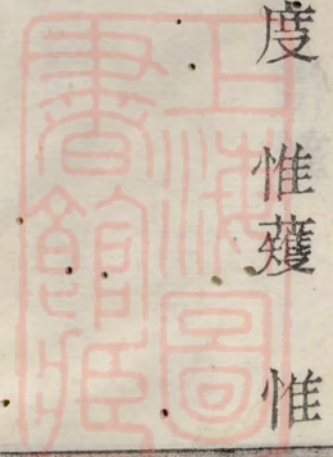 度　惟矱　惟
上海圖
書館藏